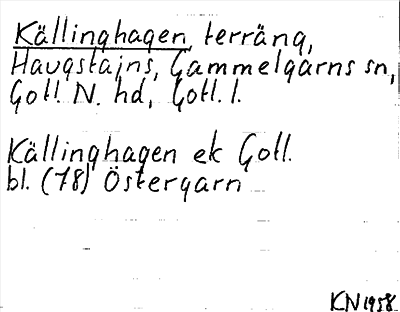 Källinghagen, terräng,
Haugstajns, Gammelgarns sn,
Gotl. N. hd, Gotl. l.
Källinghagen ek Gotl.
bl. (78) Östergarn
KN 1958